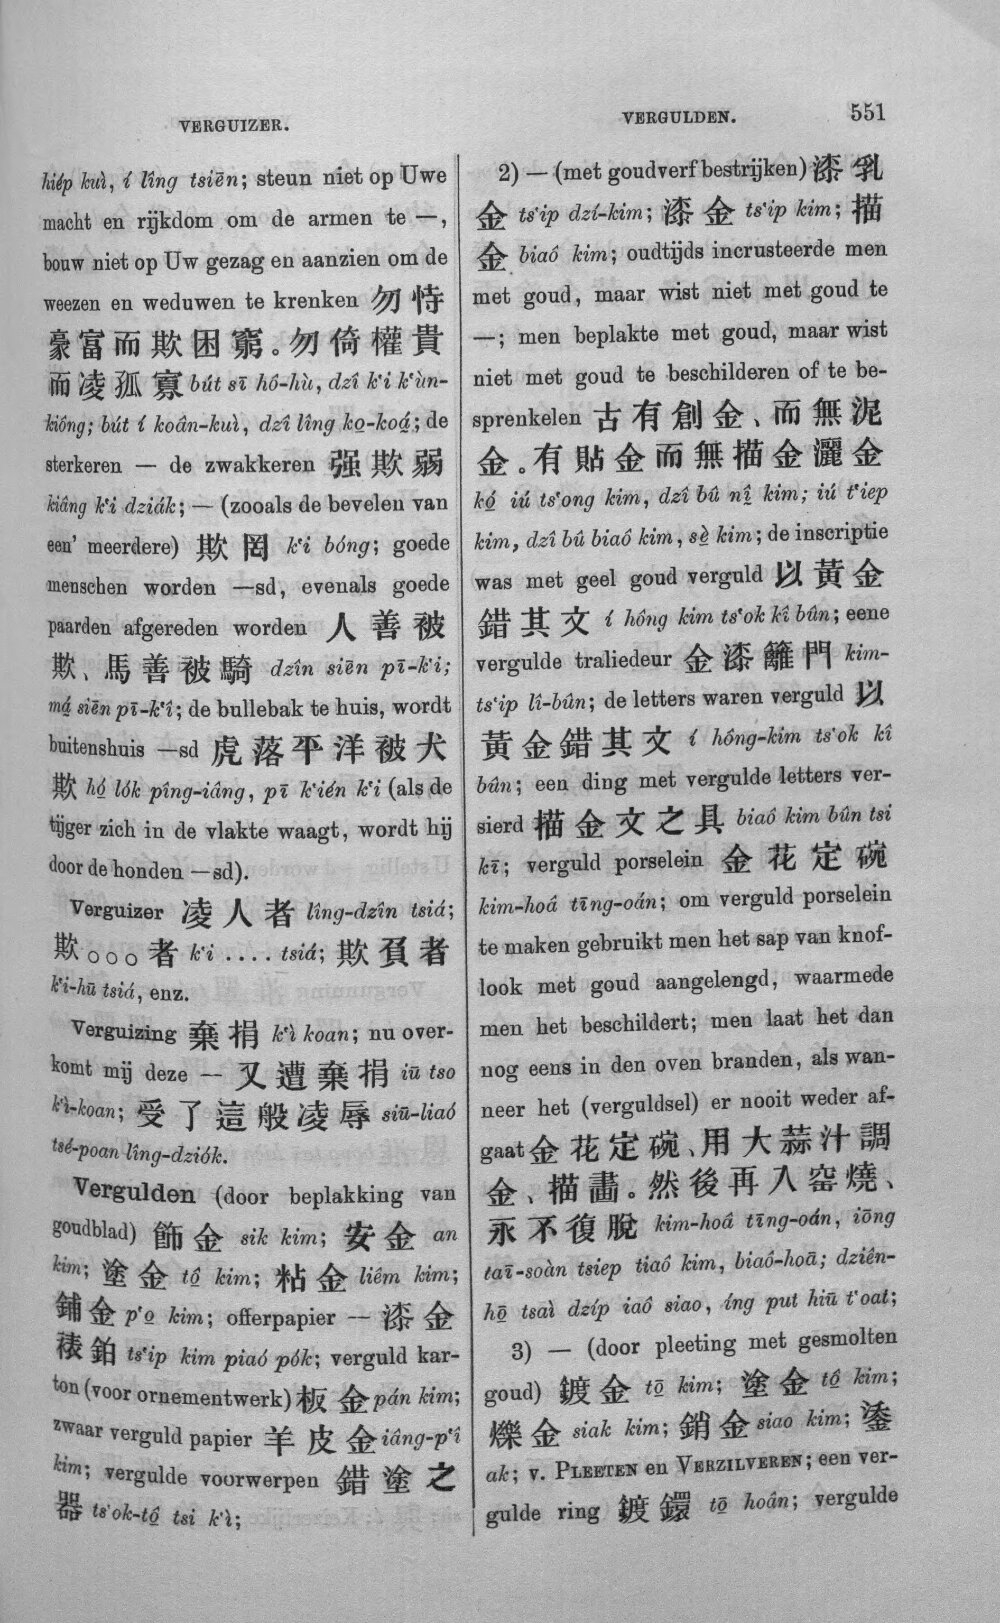 VERGUIZER.
VERGULDEN.
551
hiép kuì, í lîng tsiēn; steun niet op Uwe
macht en rijkdom om de armen te —,
bouw niet op Uw gezag en aanzien om de
weezen en weduwen te krenken 勿恃
豪富而欺困窮。勿倚權貴
而凌孤寡 bút sī hô-hù, dzî k‘i k‘ùn-
kiông; bút í koân-kuì, dzî lîng ko̱-koá̱; de
sterkeren — de zwakkeren 强欺弱
kiâng k‘i dziák; — (zooals de bevelen van
een’ meerdere) 欺罔 k‘i bóng; goede
menschen worden —sd, evenals goede
paarden afgereden worden 人善被
欺、馬善被騎 dzîn siēn pī-k‘i;
má̱ siēn pī-k‘î; de bullebak te huis, wordt
buitenshuis —sd 虎落平洋被犬
欺 hó̱ lók pîng-iâng, pī k‘ién k‘i (als de
tijger zich in de vlakte waagt, wordt hij
door de honden —sd).
Verguizer 凌人者 lîng-dzîn tsiá;
欺○○○者 k‘i .... tsiá; 欺負者
k‘i-hū tsiá, enz.
Verguizing 棄捐 k‘ì koan; nu over-
komt mij deze — 又遭棄捐 iū tso
k‘ì-koan; 受了這般凌辱 siū-liaó
tsé-poan lîng-dziók.
Vergulden (door beplakking van
goudblad) 飾金 sik kim; 安金 an
kim; 塗金 tô̱ kim; 粘金 liêm kim;
鋪金 p‘o̱ kim; offerpapier — 漆金
裱鉑 ts‘ip kim piaó pók; verguld kar-
ton (voor ornementwerk) 板金 pán kim;
zwaar verguld papier 羊皮金 iâng-p‘î
kim; vergulde voorwerpen 錯塗之
器 ts‘ok-tô̱ tsi k‘ì;
2) — (met goudverf bestrijken) 漆乳
金 ts‘ip dzí-kim; 漆金 ts‘ip kim; 描
金 biaô kim; oudtijds incrusteerde men
met goud, maar wist niet met goud te
—; men beplakte met goud, maar wist
niet met goud te beschilderen of te be-
sprenkelen 古有創金、而無泥
金。有貼金而無描金灑金
kó̱ iú ts‘ong kim, dzî bû nî̱ kim; iú t‘iep
kim, dzî bû biaô kim, sè̱ kim; de inscriptie
was met geel goud verguld 以黃金
錯其文 í hông kim ts‘ok kî bûn; eene
vergulde traliedeur 金漆籬門 kim-
ts‘ip lî-bûn; de letters waren verguld 以
黃金錯其文 í hông-kim ts‘ok kî
bûn; een ding met vergulde letters ver-
sierd 描金文之具 biaô kim bûn tsi
kī; verguld porselein 金花定碗
kim-hoâ tīng-oán; om verguld porselein
te maken gebruikt men het sap van knof-
look met goud aangelengd, waarmede
men het beschildert; men laat het dan
nog eens in den oven branden, als wan-
neer het (verguldsel) er nooit weder af-
gaat 金花定碗、用大蒜汁調
金、描畵。然後再入窑燒、
永不復脫 kim-hoâ tīng-oán, iōng
taī-soàn tsiep tiaô kim, biaô-hoā; dziên-
hō̱ tsaì dzíp iaô siao, íng put hiū t‘oat;
3) — (door pleeting met gesmolten
goud) 鍍金 tō̱ kim; 塗金 tô̱ kim;
爍金 siak kim; 銷金 siao kim; 鋈
ak; v. PLEETEN en VERZILVEREN; een ver-
gulde ring 鍍鐶 tō̱ hoân; vergulde